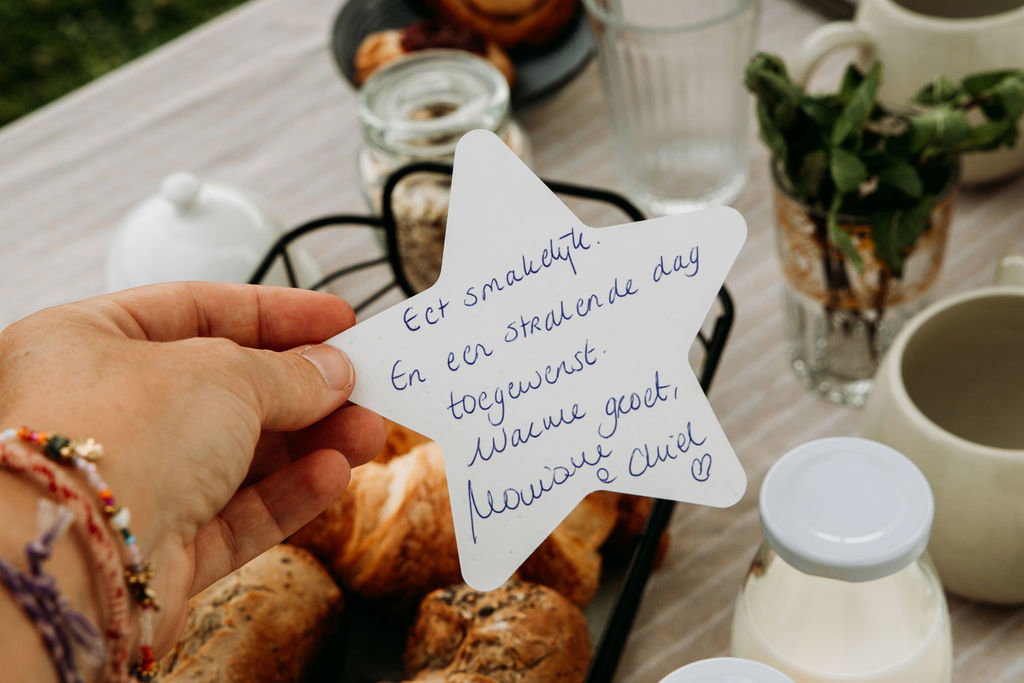 Eet smakelijk.
En een stralende dag
toegewenst.
Warme groet,
Monique & Chiel